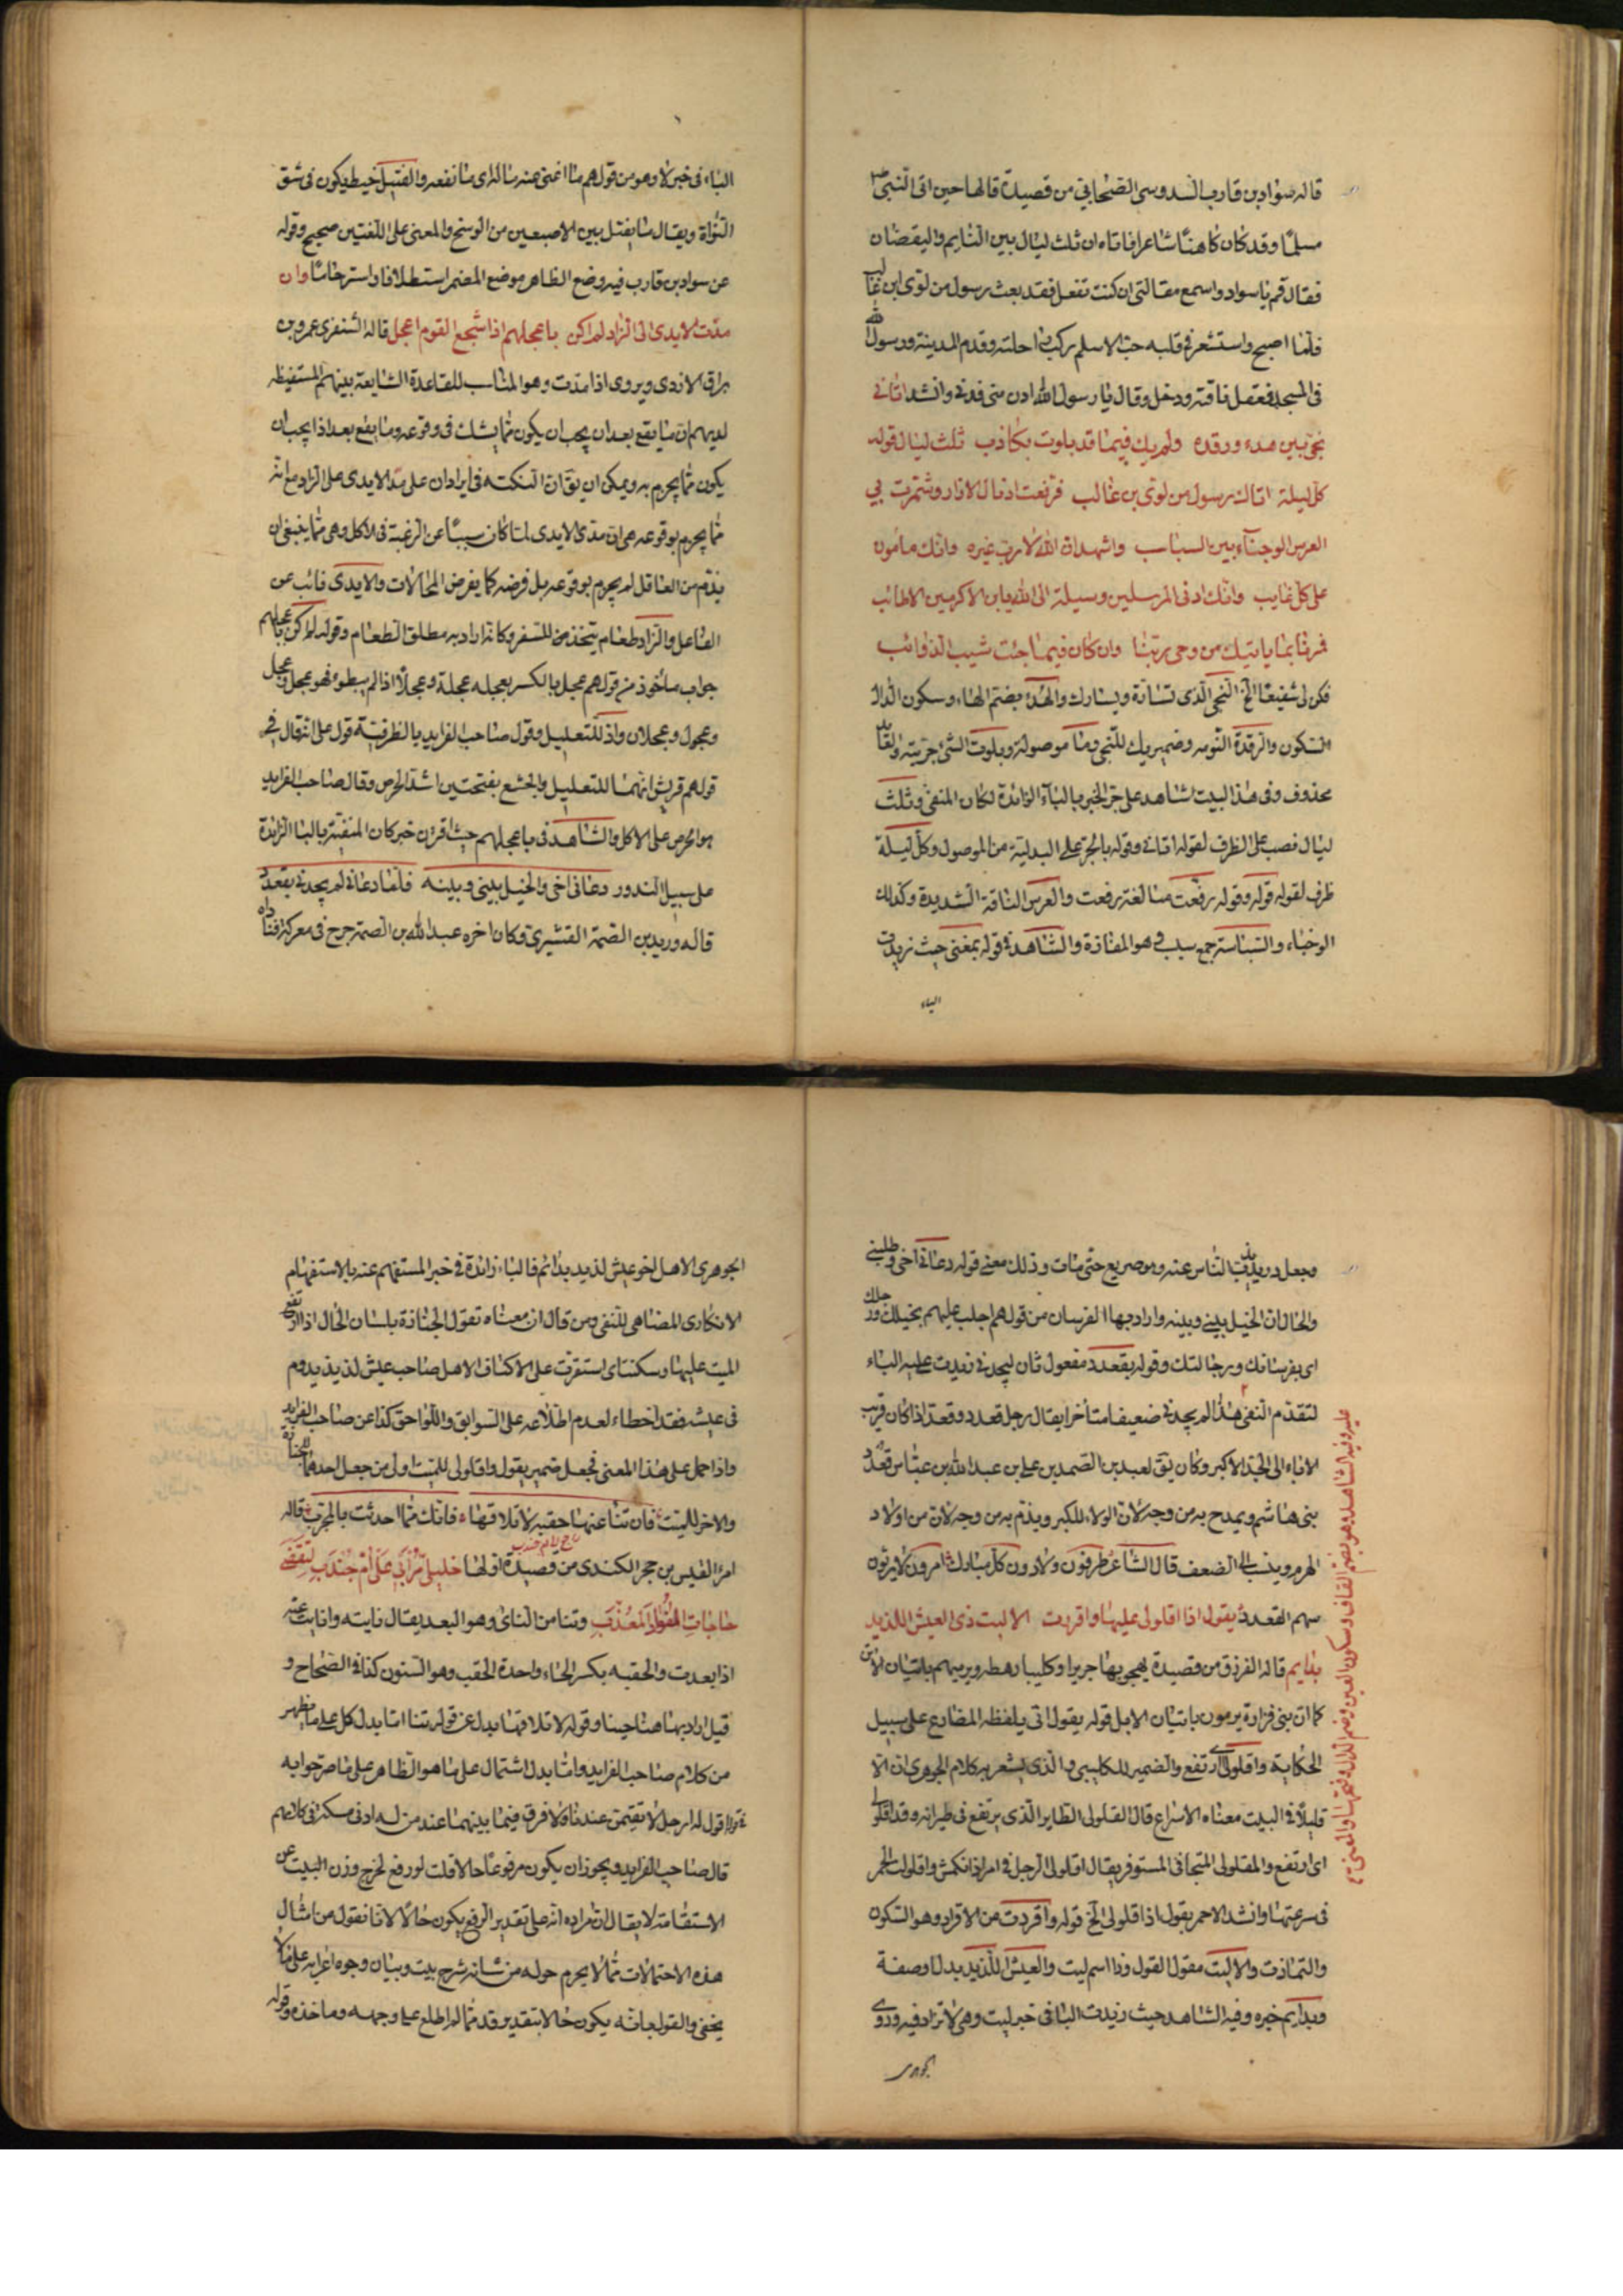 قاله سواد بن قارب السدوسی الصحابی من قصیدة قالها حین اتی النبی ص
مسلمًا وقد کان کاهنًا شاعرا فاتاه ان ثلث لیال بین النایم والیقضان
فقال قم یا سواد واسمع مقالتی ان کنت تفعل فقد بعث رسول من لوی ابن غالب
فلما اصبح واستشعر فی قلبه حب الاسلم رکب راحلته وقدم المدینة ورسول الله
فی المسجد فعقل ناقته ودخل وقال یا رسول الله ادن منی فدنی وانشد اتانی
نجی بین هدء ورقده ولم یك فیما قد بلوت بکاذب ثلث لیال قوله
کل لیلة اتاك رسول من لوی بن غالب فرفعت اذیال الازار وشمرت بی
العرمس الوجناء بین السباسب واشهد ان الله لا رب غیره وانك مامون
علی کل غایب وانك ادنی المرسلین وسیلة الی الله یا بن الاکرمین الاطائب
فمرنا بما یاتیك من وحی ربنا وان کان فیما جئت شیب الذوائب
فکن لی شفیعًا الخ النجی الذی تسارّه ویسارك والهُدء بضم الهاء وسکون الدال
السکون والرقدة النومه وضمیر یك للنجی وما موصولة وبلوت الشئ جربته والعاید
محذوف وفی هذا البیت شاهد علی جر الخبر بالباء الزائدة لکان المنفی وثلث
لیال نصب علی الظرف لقوله اتانی وقوله بالجر علی البدلیة من الموصول وکل لیلة
ظرف لقوله قوله وقوله رفعت مبالغة رفعت والعرمس الناقة الشدیدة وکذلك
الوجناء والسباسب جمع سبسب وهو المفازة والشاهد فی قوله بمغنی حیث زیدت
الباء
الباء فی خبر لا وهو من قولهم ما اغنی عنه ماله ای ما نفعه والفتیل خیط یکون فی شق
النواة ویقال ما یفتل بین الاصبعین من الوسخ والمعنی علی اللغتین صحیح وقوله
عن سواد بن قارب فیه وضع الظاهر موضع المضمر استطلافا واسترحامًا وان
مدت الایدی الی الزاد لم اکن باعجلهم اذ اشجع القوم اعجل قاله الشنفری عمرو بن
براق الازدی ویروی اذا مدت وهو المناسب للقاعدة الشایعة بینهم المستفیظه
لدیهم ان ما یقع بعد ان یجب ان یکون مما یشك فی وقوعه وما یقع بعد اذا یجب ان
یکون مما یجرم به ویمکن ان یق ان النکته فی ایراد ان علی مد الایدی علی الزاد مع انه
مما یجرم بوقوعه هی ان مدی الایدی لما کان سببًا عن الرغبة فی الاکل وهی مما ینبغی ان
یذم من العاقل لم یجرم بوقوعه بل فرضه کما یفرض المحالات والایدی نائب عن
الفاعل والزاد طعام یتخذ للسفر وکانه اراد به مطلق الطعام وقوله لم اکن باعجلهم
جواب ماخوذ من قولهم عجل بالکسر یعجل عجلة وعجلًا اذا لم یبطو فهو عجل وعجل
وعجول وعجلان واذ للتعلیل وقول صاحب الفراید بالظرفیة قول علی انه قال فی
قولهم قریش انهما للتعلیل والجشع بفتحتین اشد الحرص وقال صاحب الفراید
هو الحرص علی الاکل والشاهد فی باعجلهم حیث اقرن خبر کان المنفیة بالبا الزائدة
علی سبیل الندور دعانی اخی والخیل بینی وبینه فلما دعانی لم یجدنی بقعدد
قاله درید بن الصمة القشیری وکان اخره عبد الله بن الصمة جرح فی معرکة
وجعل درید یذب الناس عنه وهو صریع حتی مات وذلك معنی قوله دعانی اخی وطلبنی
والحال ان الخیل بینی وبینه واراد بها الفرسان من قولهم اجلب علیهم بخیلك ورجلك
ای بفرسانك ورجالتك وقوله بقعدد مفعول ثان لیجدنی زیدت علیه الباء
لتقدم النفی هذا لم یجدنی ضعیفا متأخرا یقال رجل قعدد وقعدد اذا کان قریب
الاباء الی الجد الاکبر وکان یق لعبد بن الصمد بن علی بن عبد الله بن عباس قعدد
بنی هاشم ویمدح به من وجه لان الولاء للکبر ویذم به من وجه لان من اولاد
الهرم وینسب الی الضعف قال الشاعر طرفون ولادون کل مبارك امرون لا یرثون
سهم القعدد یقول اذا اقلولی علیها واقردت الا لیت ذی العیش اللذید
بدایم قاله الفرزق من قصیدة یهجو بها جریرا وکلیبا رهطه ویرمیهم باتیان الاتن
کما ان بنی فزارة یرمون باتیان الابل قوله یقول اتی بلفظه المضارع علی سبیل
الحکایة واقلولی ای ارتفع والضمیر للکلیبی والذی یشعر به کلام الجوهری ان الا
قلیلاً فی البیت معناه الاسراع قال القلولی الطایر الذی یرتفع فی طیرانه وقد اقلولی
ای ارتفع والمقلولی المتجافی المستوفز یقال اقلولی الرجل فی امره اذا انکمش واقلولت الحمر
فی سرعتها وانشد الاحمر یقول اذا قلولی الخ قوله واقردت من الاقراد وهو السکون
والتماذت والا لیت مقول القول وذا اسم لیت والعیش اللذید بدل او صفة
وبدایم خبره وفیه الشاهد حیث زیدت البا فی خبر لیت وهی لا تزاد فیه وروی
الجوهری
علیه وفیه الشاهد وهو بضم القاف وسکون العین وضم الدال وفتحها والمعنی
الجوهری الا هل اخو عیش لذید بدائم فالباء زائدة فی خبر المستفهم عنه بالاستفهام
الانکاری المضاهی للنفی ومن قال ان معناه تقول الجنازة بلسان الحال اذا ارتفع
المیت علیها وسکنت ای استقرت علی الاکتاف الا هل صاحب عیش لذیذ یدوم
فی عیشه فقد اخطاء لعدم اطلاعه علی السوابق واللواحق کذا عن صاحب الفراید
واذا حمل علی هذا المعنی فجعل ضمیر یقول واقلولی للمیت اولی من جعل احدهما للجنازة
والاخر للمیت فان تنا عنها حقبه لا تلاقها فانك مما احدثت بالمجرب قاله
امرؤ القیس بن حجر الکندی من قصیدة اولها خلیلی مرّا بی علی ام جندب لنقضی
حاجات الفؤاد المعذب وتنا من النای وهو البعد یقال نایته ونایت عنه
اذا بعدت والحقبه بکسر الحاء واحدة الحقب وهو السنون کذا فی الصحاح و
قیل اراد بها هنا حینا وقوله لا تلاقها بدل عن قوله تنا اما بدل کل علی ما یظهر
من کلام صاحب الفراید واما بدل اشتمال علی ما هو الظاهر علی ما صرحوا به
فی قوله اقول له ارحل لا تقیمن عندنا ولا فرق فیما بینهما عند من له ادنی مسکة فی کلامهم
قال صاحب الفراید ویجوز ان یکون مرفوعًا حالا قلت لو رفع لخرج وزن البیت عن
الاستقامة لا یقال ان مراده انه علی تقدیر الرفع یکون حالًا لانا نقول من امثال
هذه الاحتمالات مما لا یحرم حوله من شانه شرح بیت وبیان وجوه اعرابه علی ما لا
یخفی والقول بانه یکون حالا بتقدیر قد مما لم اطلع علی وجهه وماخذه وقوله